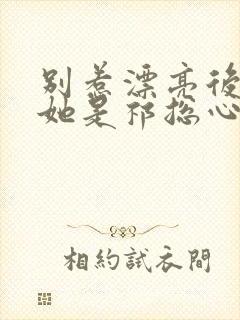 别惹漂亮後
她是祁总心
相約試衣間